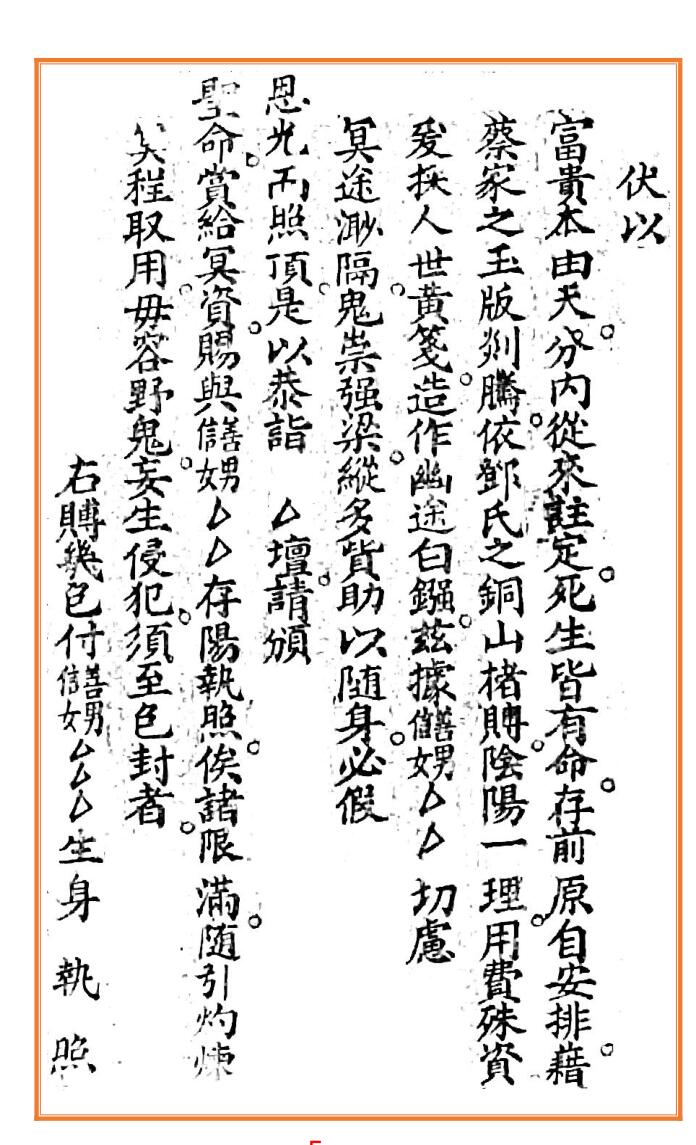 伏以
富貴本由天分内從來註定死生皆有命存前原自安排藉
蔡家之玉版剡騰依鄧氏之銅山楮賻陰陽一理用費殊資
爰採人世黃箋造作幽途白鏹兹據信善女男厶厶切慮
冥途渺隔鬼祟强梁縱多貲助以随身必假
恩光而照頂是以恭詣厶壇請頒
聖命賞給冥資賜與信善女男厶厶存陽執照俟諸限滿随引灼煉
冥程取用毋容野鬼妄生侵犯須至包封者
右賻幾包付信善女男厶厶厶生身執照
5